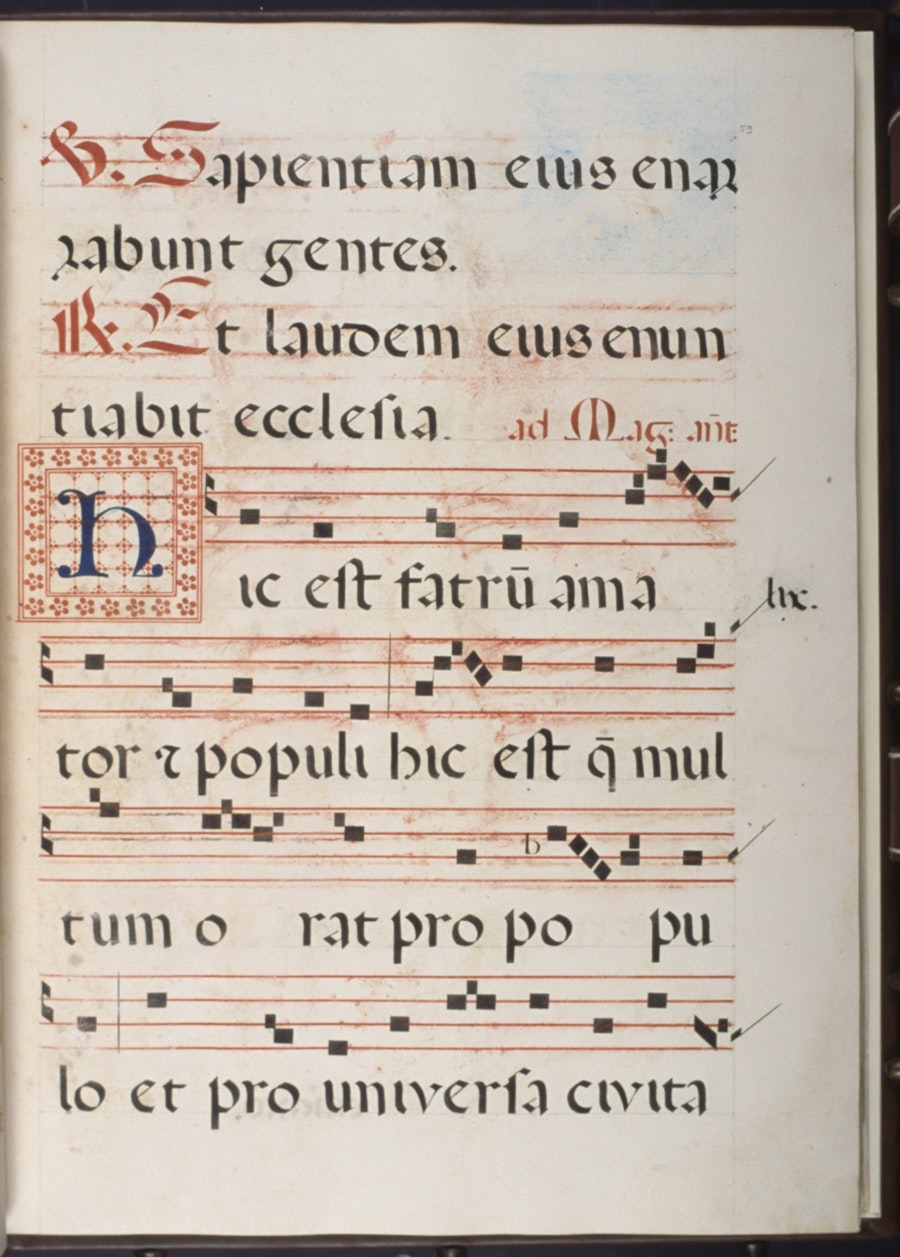 ℣. Sapientiam eius enar
rabunt gentes.
℟. Et laudem eius enun
tiabit eccleſia. ad Mag: an̄t
hic eſt fatrū ama
lix.
tor ⁊ populi hic eſt q̄ mul
tum o rat pro po pu
lo et pro univerſa civita